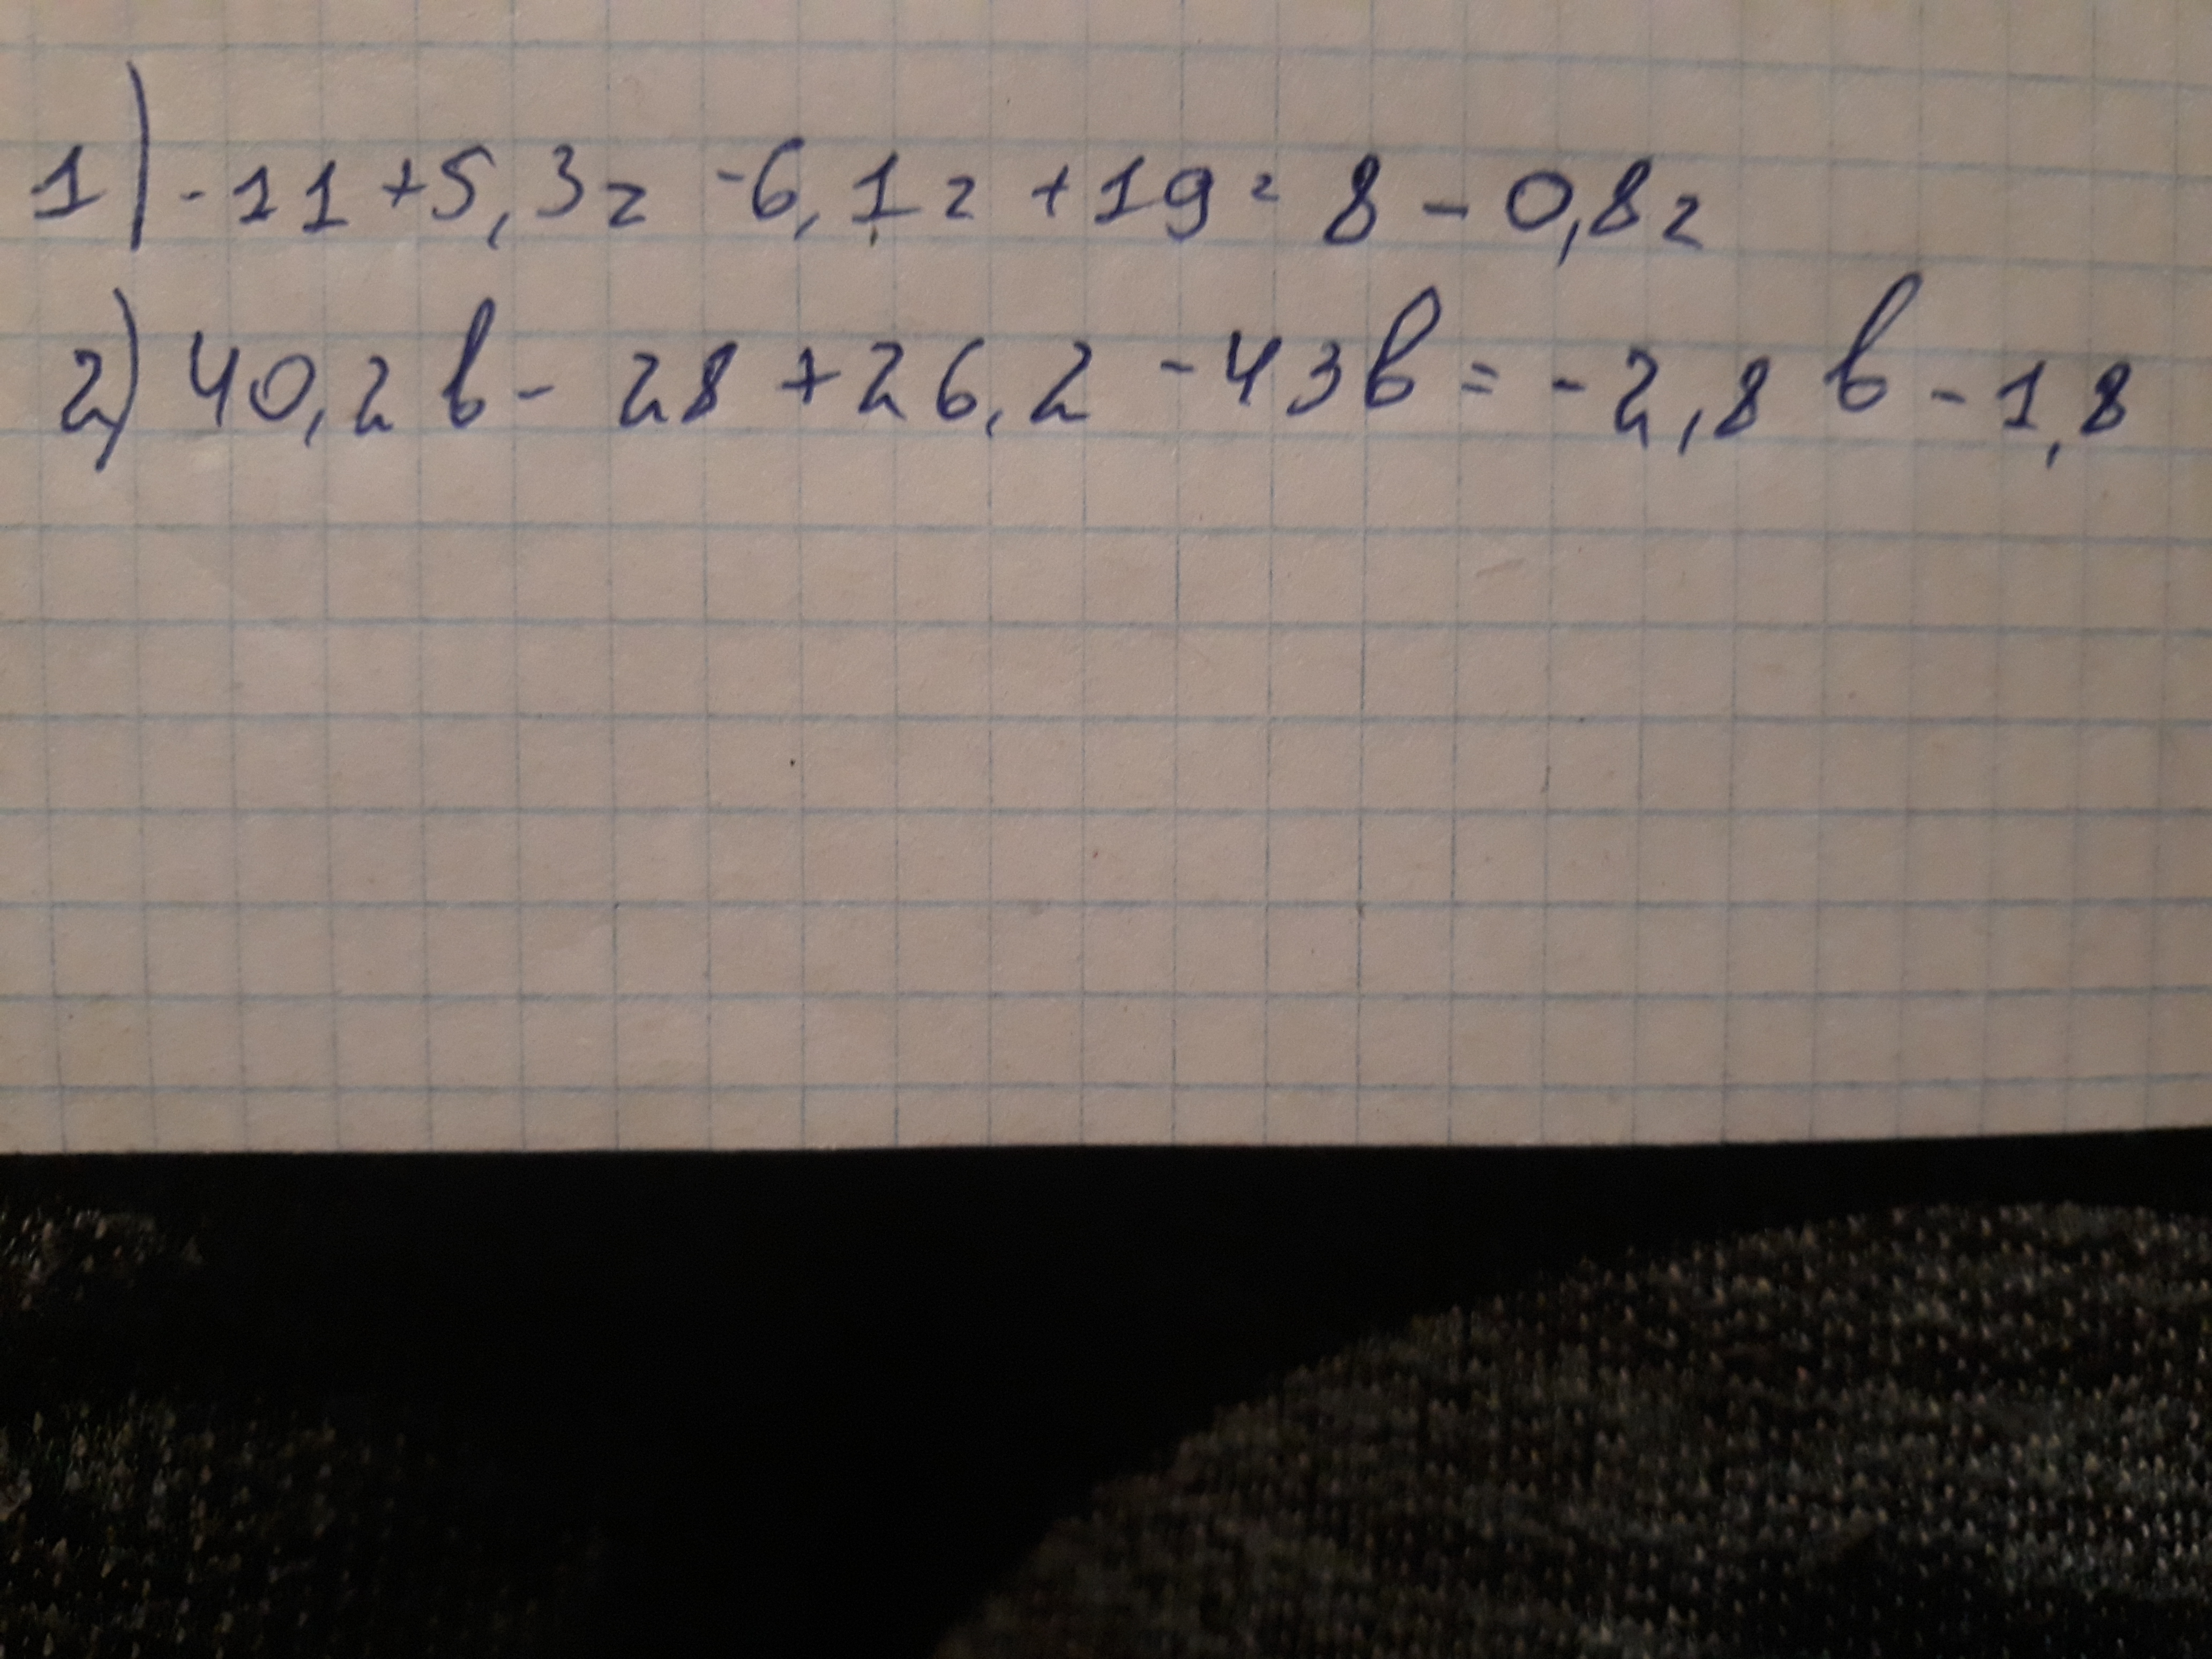 1) -11 +5,3г -6,1г +19 = 8 - 0,8г
2) 40,2в - 28 + 26,2 - 43в = -2,8в - 1,8